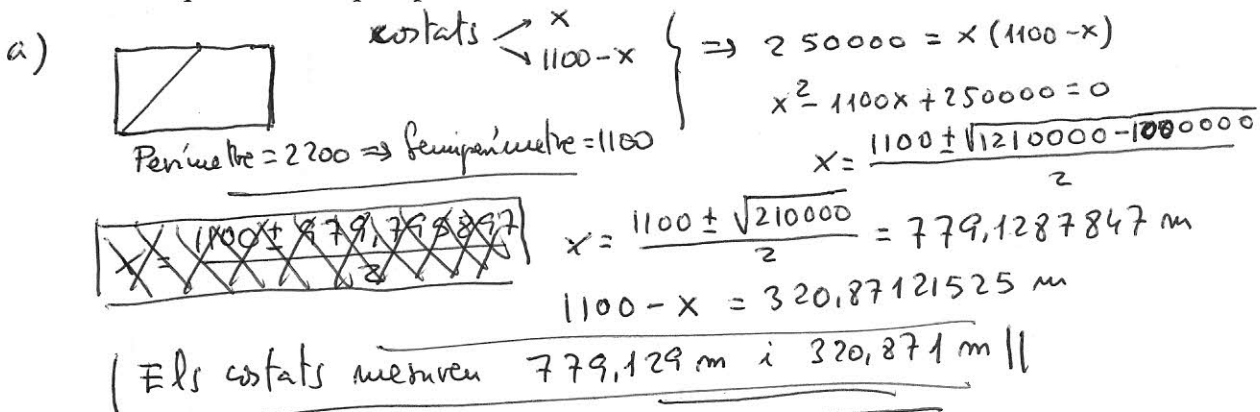 a)
costats x
1100-x
⇒ 250000 = x(1100-x)
x² - 1100x + 250000 = 0
Perímetre = 2200 ⇒ Semiperímetre = 1100
x = (1100 ± √(1210000 - 1000000)) / 2
x = (1100 ± 979,795897) / 2
x = (1100 ± √210000) / 2 = 779,1287847 m
1100 - x = 320,87121525 m
Els costats mesuren 779,129 m i 320,871 m